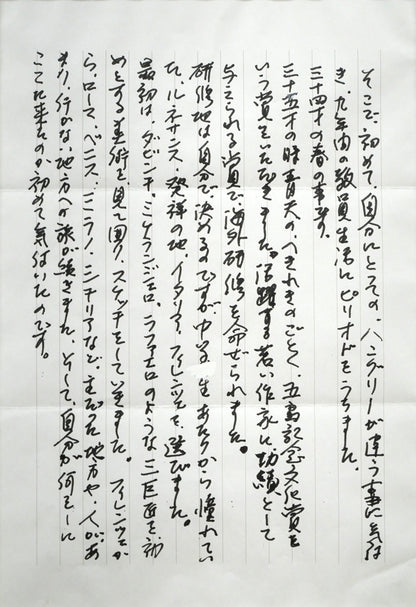 そこで、初めて、自分にとっての、バンダリーが違う事に気付
き、九年間の教員生活にピリオドをうちました。
三十四才の春の事です。
三十五才の時、青天の、へきれきのごとく、五島記念文化賞と
いう賞をいただきました。活躍する若い作家に功績として
与えられる賞で、海外研修を命ぜられました。
研修地は自分で、決めるのですが、中学生あたりから憧れてい
た、ルネサンス、発祥の地、イタリア、フィレンツェを、選びました。
最初は、ダビンチ、ミケランジェロ、ラファエロのような三巨匠を初
めとする美術を、見て回り、スケッチをして、いました。フィレンツェか
ら、ローマ、ベニス、ミラノ、シチリアなど、主だった地方や、人があ
まり、行かない地方への旅が続きました。そして、自分が何をしに
ここに来たのか初めて気付いたのです。